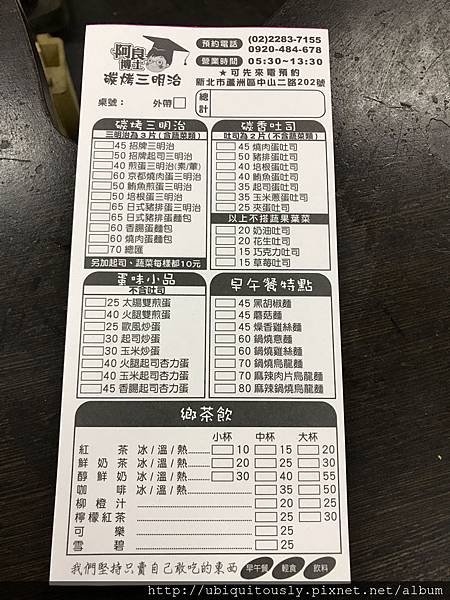 阿良
博士
碳烤三明治
預約電話 (02)2283-7155
0920-484-678
營業時間 05:30~13:30
★可先來電預約
新北市蘆洲區中山二路202號
桌號： 外帶
總計
碳烤三明治
三明治為3片(含蔬菜類)
45 招牌三明治
50 招牌起司三明治
40 煎蛋三明治(素/葷)
60 京都燒肉蛋三明治
50 鮪魚煎蛋三明治
50 培根蛋三明治
65 日式豬排蛋三明治
65 日式豬排蛋麵包
60 香腸蛋麵包
60 燒肉蛋麵包
70 總匯
另加起司、蔬菜每樣都10元
碳香吐司
吐司為2片(不含蔬菜類)
45 燒肉蛋吐司
50 豬排蛋吐司
40 培根蛋吐司
40 鮪魚蛋吐司
35 起司蛋吐司
35 玉米蔥蛋吐司
25 夾蛋吐司
以上不搭蔬果葉菜
20 奶油吐司
20 花生吐司
15 巧克力吐司
15 草莓吐司
蛋味小品
不含吐司
25 太陽雙煎蛋
40 火腿雙煎蛋
25 歐風炒蛋
30 起司炒蛋
30 玉米炒蛋
40 火腿起司杏力蛋
40 玉米起司杏力蛋
45 香腸起司杏力蛋
早午餐特點
45 黑胡椒麵
45 蘑菇麵
45 燥香雞絲麵
60 鍋燒意麵
60 鍋燒雞絲麵
70 鍋燒烏龍麵
70 麻辣肉片烏龍麵
80 麻辣鍋燒烏龍麵
鄉茶飲
小杯 中杯 大杯
紅茶 冰/溫/熱...... 10 15 20
鮮奶茶 冰/溫/熱...... 20 25 30
醇鮮奶 冰/溫/熱...... 30 40 55
咖啡 冰/溫/熱...... 35 50
柳橙汁...... 20 25
檸檬紅茶...... 25 30
可樂...... 25
雪碧...... 25
我們堅持只賣自己敢吃的東西 早午餐 輕食 飲料
http://ubiquitously.pixnet.net/album